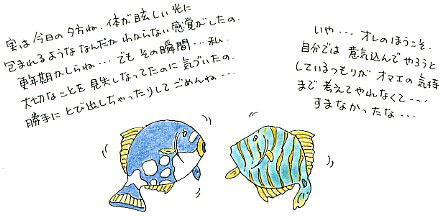 実は今日の夕方ね、体が眩しい光に
包まれるような なんだかわからない感覚がしたの。
更年期かしらね… でも その瞬間…私、
大切なことを見失なってたのに気づいたの。
勝手に とび出しちゃったりして ごめんね…
いや… オレのほうこそ、
自分では 意気込んで やろうと
しているつもりが オマエの気持
まで 考えてやれなくて…
すまなかったな…